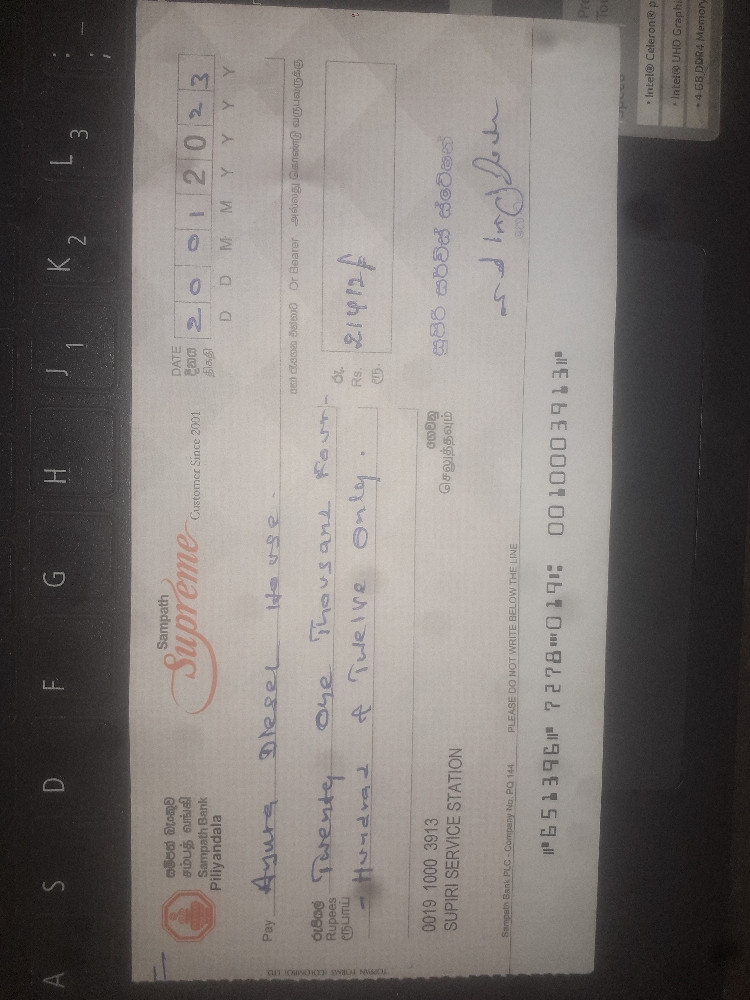 සම්පත් බැංකුව
சம்பத் வங்கி
Sampath Bank
Piliyandala
Sampath
Supreme
Customer Since 2001
DATE
දිනය
திகதி
2 0 0 1 2 0 2 3
D D M M Y Y Y Y
Pay Anura Diesel House
හෝ රැගෙන එන්නාට Or Bearer அல்லது கொண்டு வருபவருக்கு
රුපියල්
Rupees
ரூபாய்
Twenty One Thousand Four
Hundred & Twelve Only.
රු.
Rs.
ரூ.
21412/-
0019 1000 3913
SUPIRI SERVICE STATION
ගෙවනු
செலுத்தவும்
සුපිරි සර්විස් ස්ටේෂන්
Sampath Bank PLC - Company No. PQ 144
PLEASE DO NOT WRITE BELOW THE LINE
651396 7278 019 0010003913
A S D F G H J K L ; :
1 2 3 -
• Intel® Celeron® p
• Intel® UHD Graphi
• 4 GB DDR4 Memory